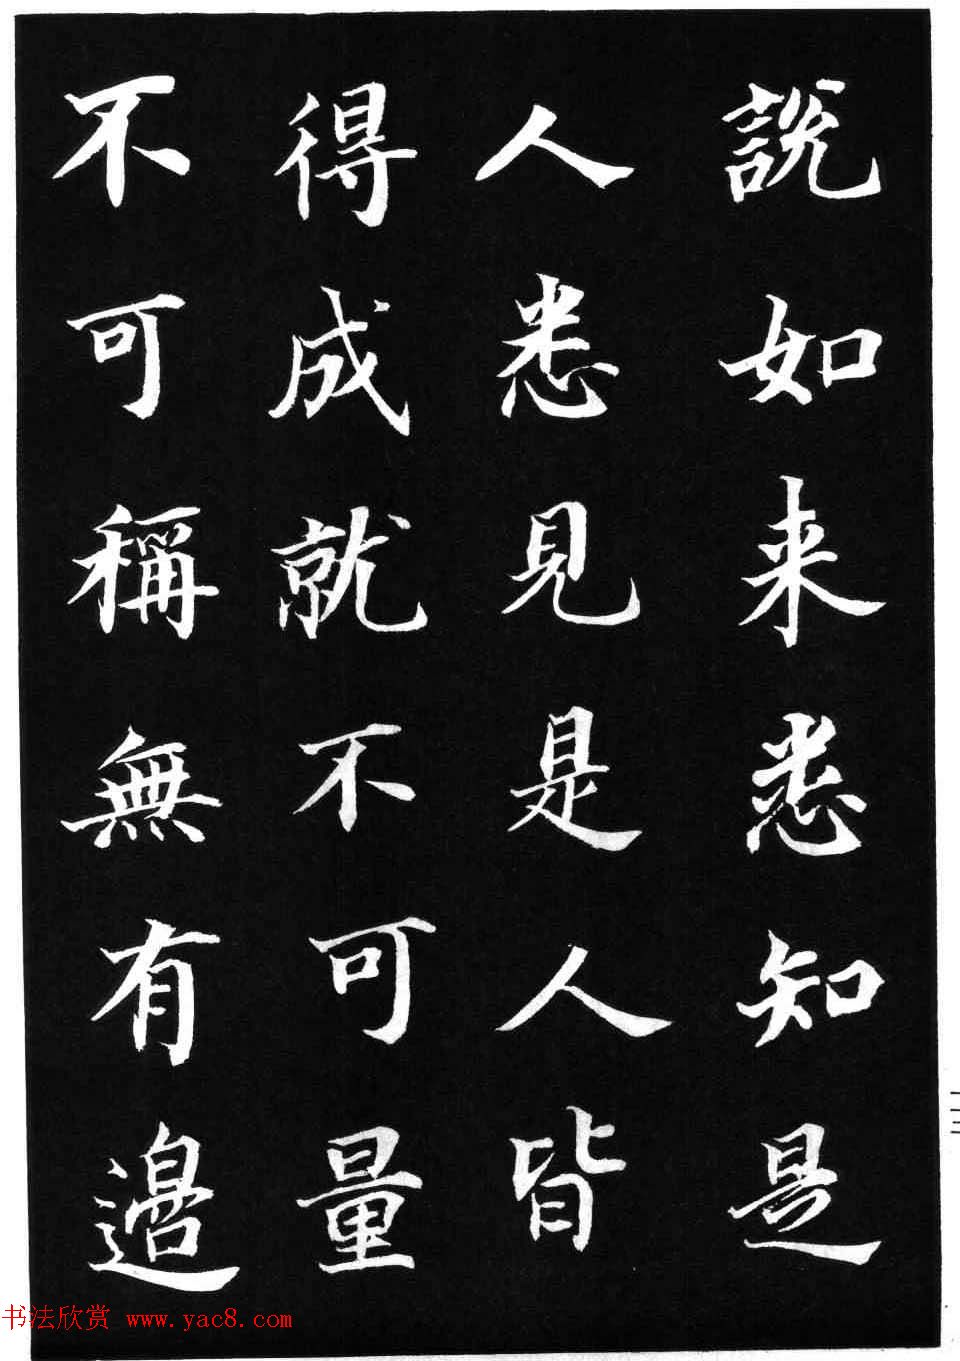 說如来悉知是
人悉見是人皆
得成就不可量
不可稱無有邊
书法欣赏 www.yac8.com